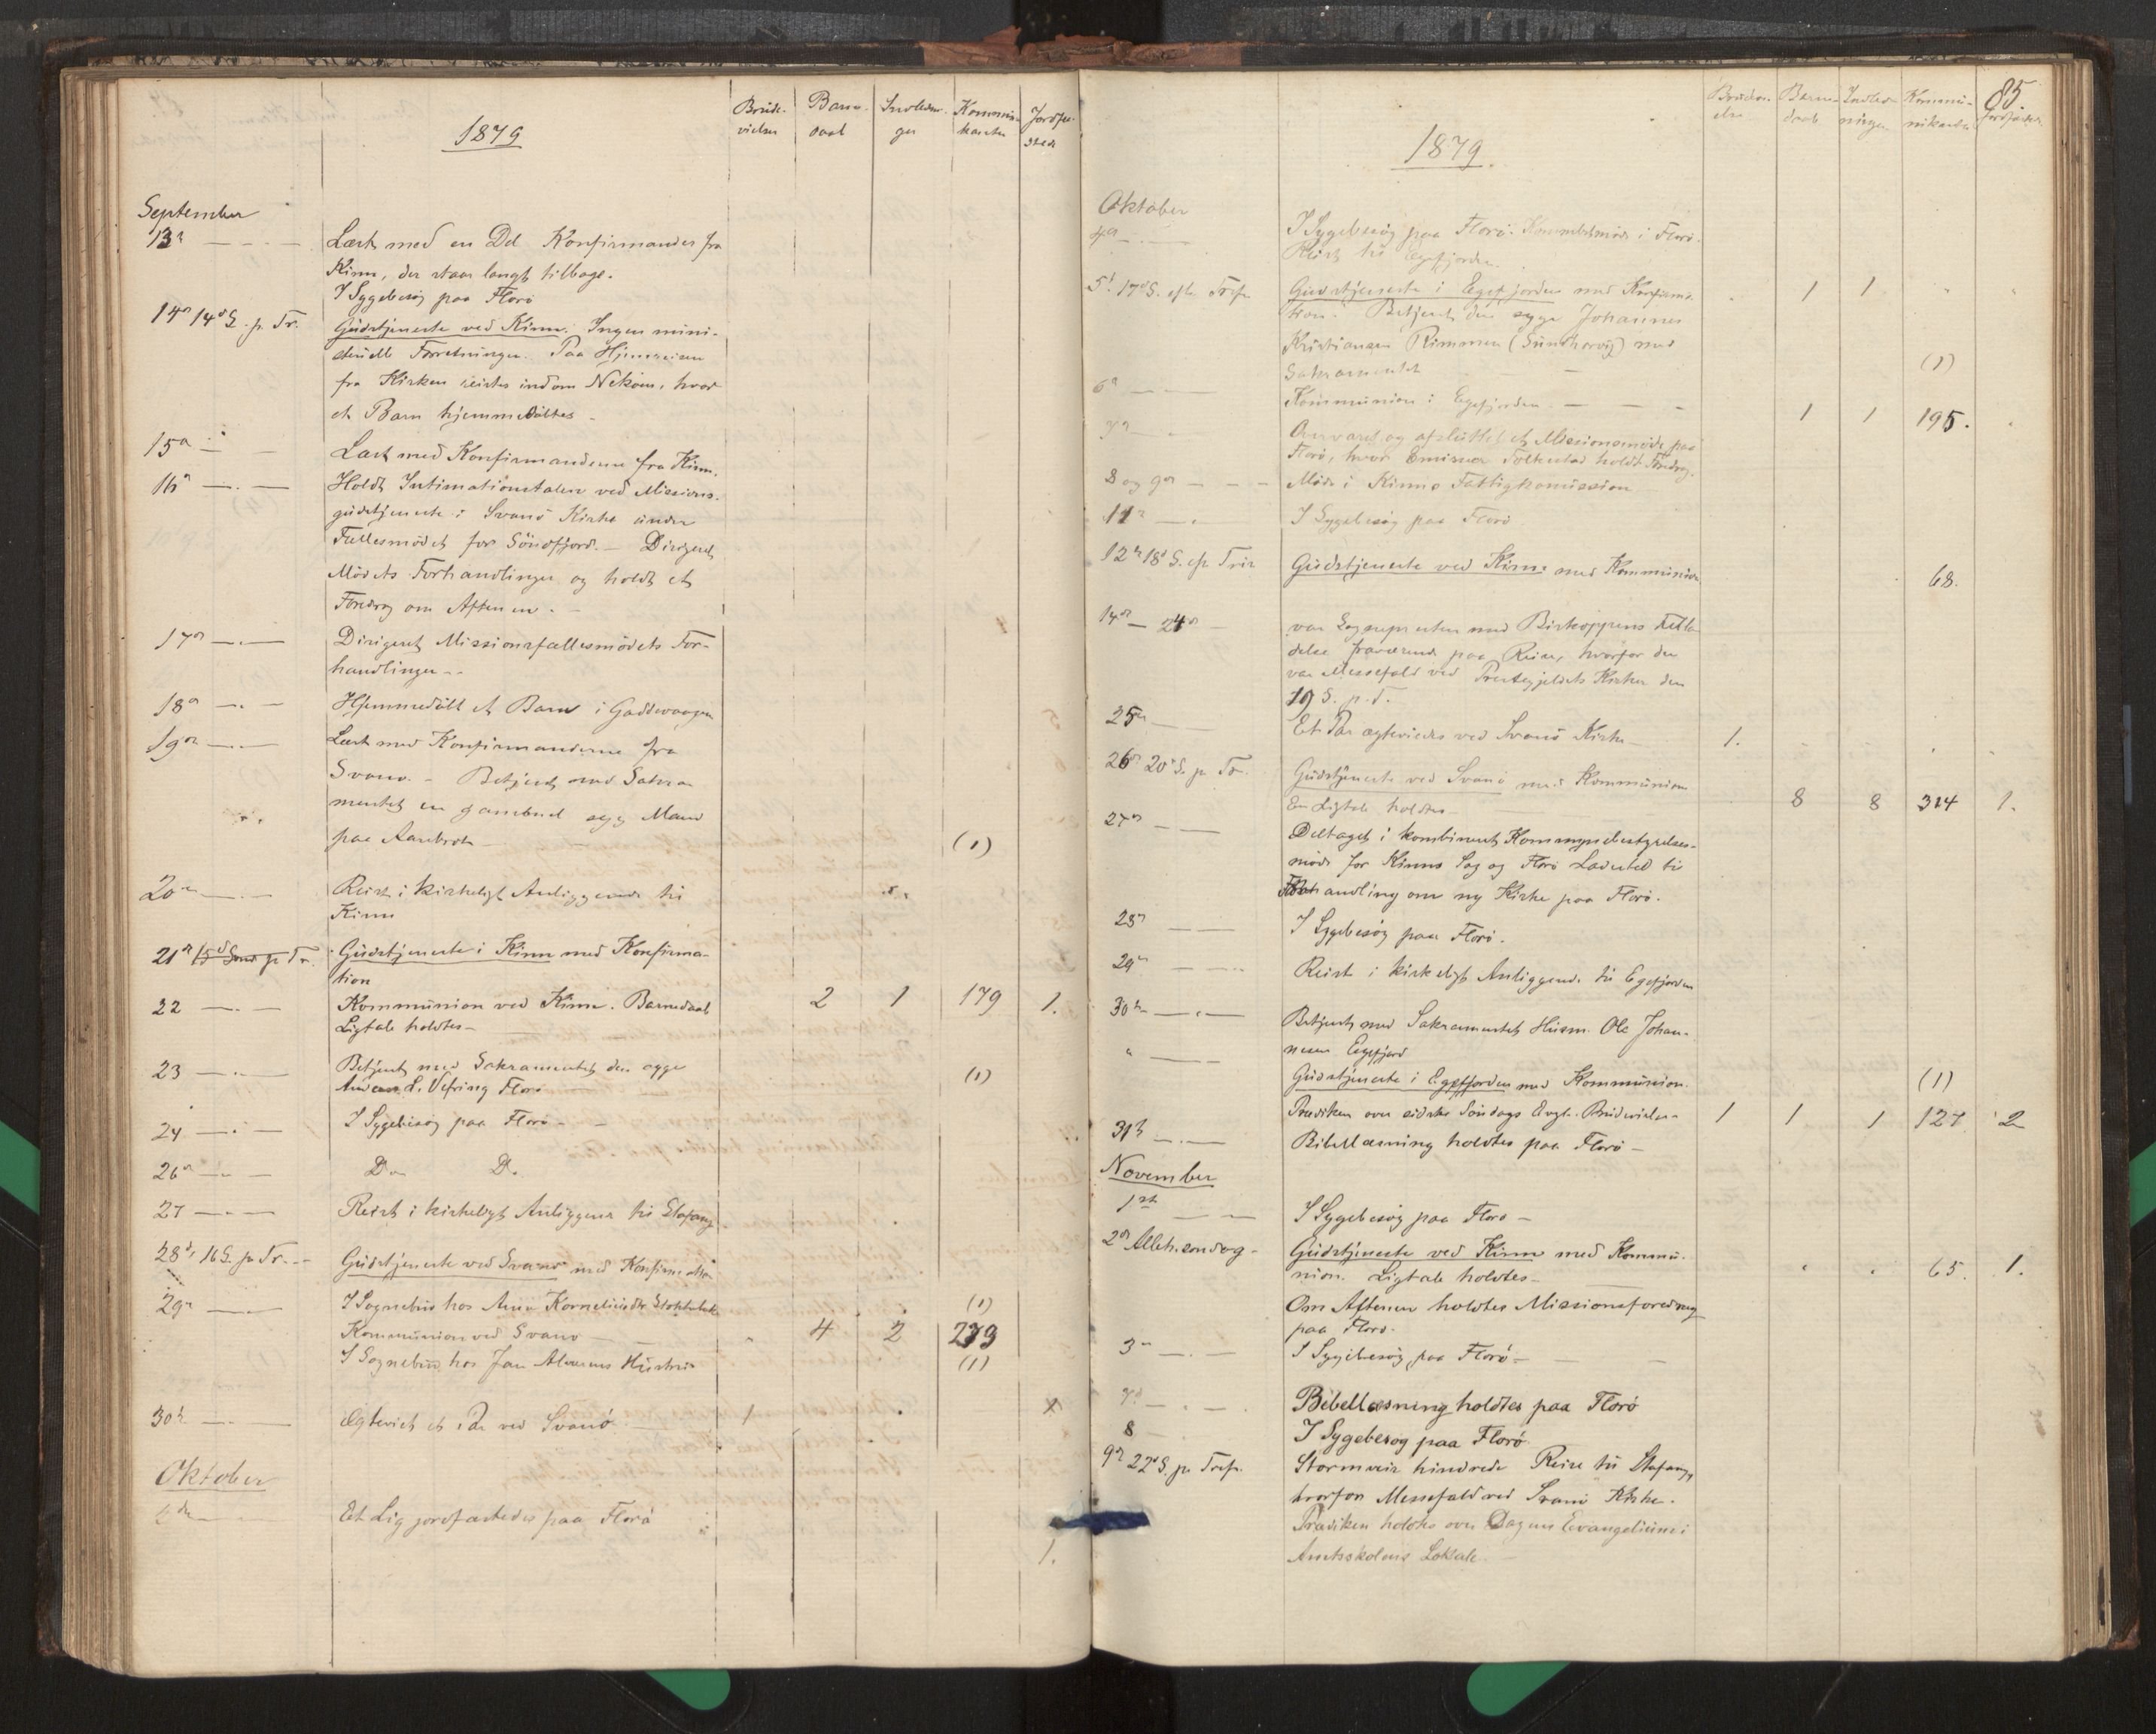 1879
Brude-
vielser
Barne-
daab
Indledn.
ger
Kommuni-
kanter
Jordfæ-
stede
September
13de Læst med en Del Konfirmander fra
Kinn, der staar langt tilbage.
I Sygebesøg paa Florö
14de 14de S. p. Tr. Gudstjeneste ved Kinn. Ingen mini-
sterielle Forretninger. Paa Hjemreisen
fra Kirken reistes indom Nekøen, hvor
et Barn hjemmedöbtes -
15de Læst med Konfirmanderne fra Kinn.
16de Holdt Intimationstalen ved Missions-
gudstjeneste i Svanö Kirke under
Fællesmödet for Söndfjord. - Dirigeret
Mödets Forhandlinger og holdt et
Foredrag om Aftenen. -
17de Dirigeret Missionsfællesmödets For-
handlinger -
18de Hjemmedöbt et Barn i Gaddevaagen
19de Læst med Konfirmanderne fra
Svanö. - Betjent med Sakra
mentet en gammel syg Mand
paa Aarebrot - (1)
20de Reist i kirkeligt Anliggende til
Kinn
21de 15de Sønd p Tr. Gudstjeneste i Kinn med Konfirma-
tion
22 Kommunion ved Kinn. Barnedaab 2 1 179 1.
Ligtale holdtes -
23 Betjent med Sakramentet den syge
L. Vefring Florö (1)
24 I Sygebesøg paa Florö -
26de Do Do
27 Reist i kirkeligt Anliggende til Stafang
28de, 16 S. p. Tr. - Gudstjeneste ved Svanö med Konfirmation
29de I Sognebud hos Anna Korneliusdtr (1)
Kommunion ved Svanö 4 2 273
I Sognebud hos Jan Hustru (1)
30te Ægteviet et Par ved Svanö 1
Oktober
2den Et Lig jordfæstedes paa Florö
1.
85.
Brudevi-
else
Barne-
daab
Indled-
ninger
Kommu-
nikanter
Jordfæstede
1879.
Oktober
4de I Sygebesøg paa Florö. i Florö.
Reist til Egefjorden.
5te 17de S. efter Trefr. Gudstjeneste i Egefjorden med Konfirma- 1 1
tion. Betjent den syge Johannes
Kristiansen Rimmen med
Sakramentet (1)
6te Kommunion i Egefjorden 1 1 195.
7de og afsluttet et Missionsmöde paa
Florö, hvor Emissær Folkestad holdt Foredrag.
8 og 9de Möde i Kinns Fattigkomission
11te I Sygebesøg paa Florö
12te 18de S. ef. Trin Gudstjeneste ved Kinn med Kommunion 68.
14de - 24de var Sognepresten med Biskoppens Tilla
delse fraværende paa Reise, hvorfor der
var Messefald ved Prestegjeldets Kirker den
19 S. p. T.
25de Et Par ægteviedes ved Svanö Kirke 1.
26de 20de S. p. Tr. Gudstjeneste ved Svanö med Kommunion
En Ligtale holdtes 8 8 314 1.
27de Deltaget i kombineret Kommunebestyrelses-
möde for Kinns Sog og Florö Ladested til
Forhandling om ny Kirke paa Florö.
28de I Sygebesøg paa Florö.
29de Reist i kirkeligt Anliggende til Egefjorden
30te Betjent med Sakramentet Husm. Ole Johan-
nesen Eegefjord
" Gudstjeneste i Egefjorden med Kommunion. (1)
Prædiken over sidste Söndags Evgl. Brudevielse - 1 1 1 127 2
31te Bibellæsning holdtes paa Florö -
November
1ste I Sygebesøg paa Florö -
2den Alleh.sondag - Gudstjeneste ved Kinn med Kommu-
nion. Ligtale holdtes - 65. 1.
Om Aftenen holdtes Missionsforedrag
paa Florö.
3die I Sygebesøg paa Florö -
7de Bibellæsning holdtes paa Florö
8 I Sygebesøg paa Florö
9de 22de S. p. Trefr. Stormveir hindrede Reise til Stafang,
hvorfor Messefald ved Svanö Kirke.
Prædiken holdtes over Dagens Evangelium i
Amtsskolens Lokale. -